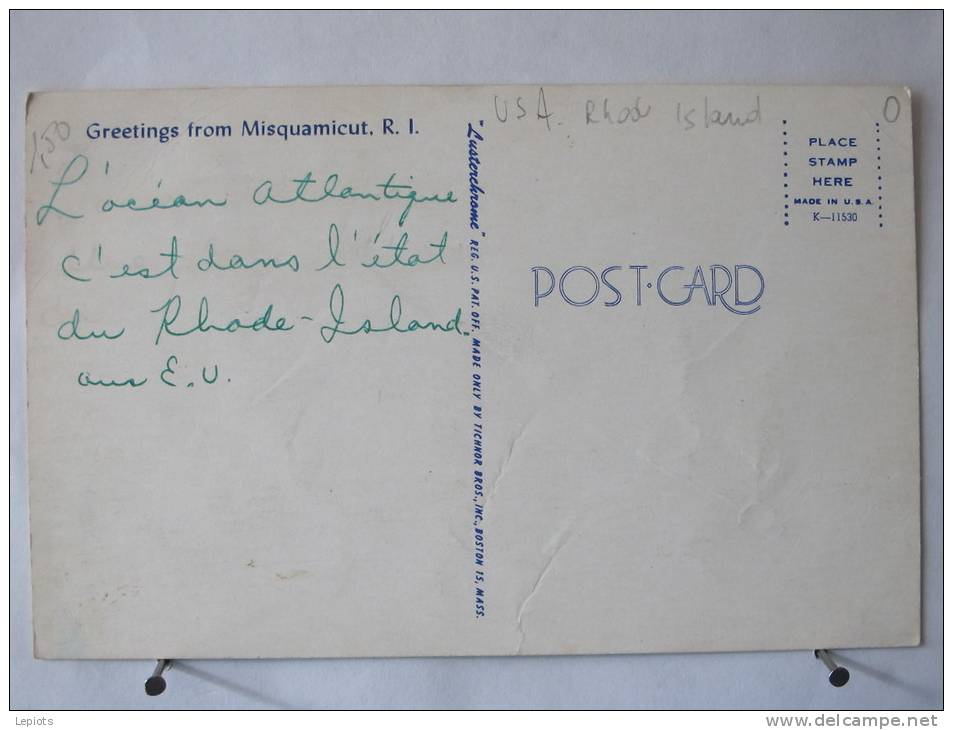 1,50
Greetings from Misquamicut, R. I.
L'océan Atlantique
c'est dans l'état
du Rhode-Island.
aus E.U.
"Lusterchrome" REG. U.S. PAT. OFF. MADE ONLY BY TICHNOR BROS., INC., BOSTON 15, MASS.
USA. Rhode Island
O
PLACE
STAMP
HERE
MADE IN U.S.A.
K—11530
POST·CARD
Lepiots
www.delcampe.net